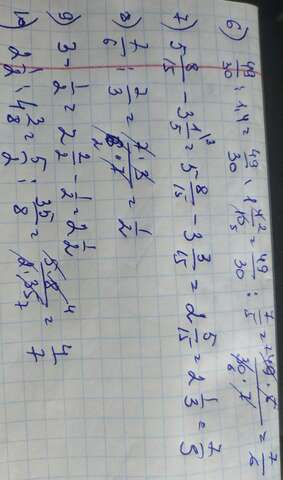 6) 49/30 : 1,4 = 49/30 : 1 4/10 = 49/30 : 7/5 = 49·5/30·7 = 7/6
7) 5 8/15 - 3 1/5 = 5 8/15 - 3 3/15 = 2 5/15 = 2 1/3 = 7/3
8) 7/6 : 7/3 = 7·3/6·7 = 1/2
9) 3 - 1/2 = 2 2/2 - 1/2 = 2 1/2
10) 2 1/2 : 4 3/8 = 5/2 : 35/8 = 5·8/2·35 = 4/7